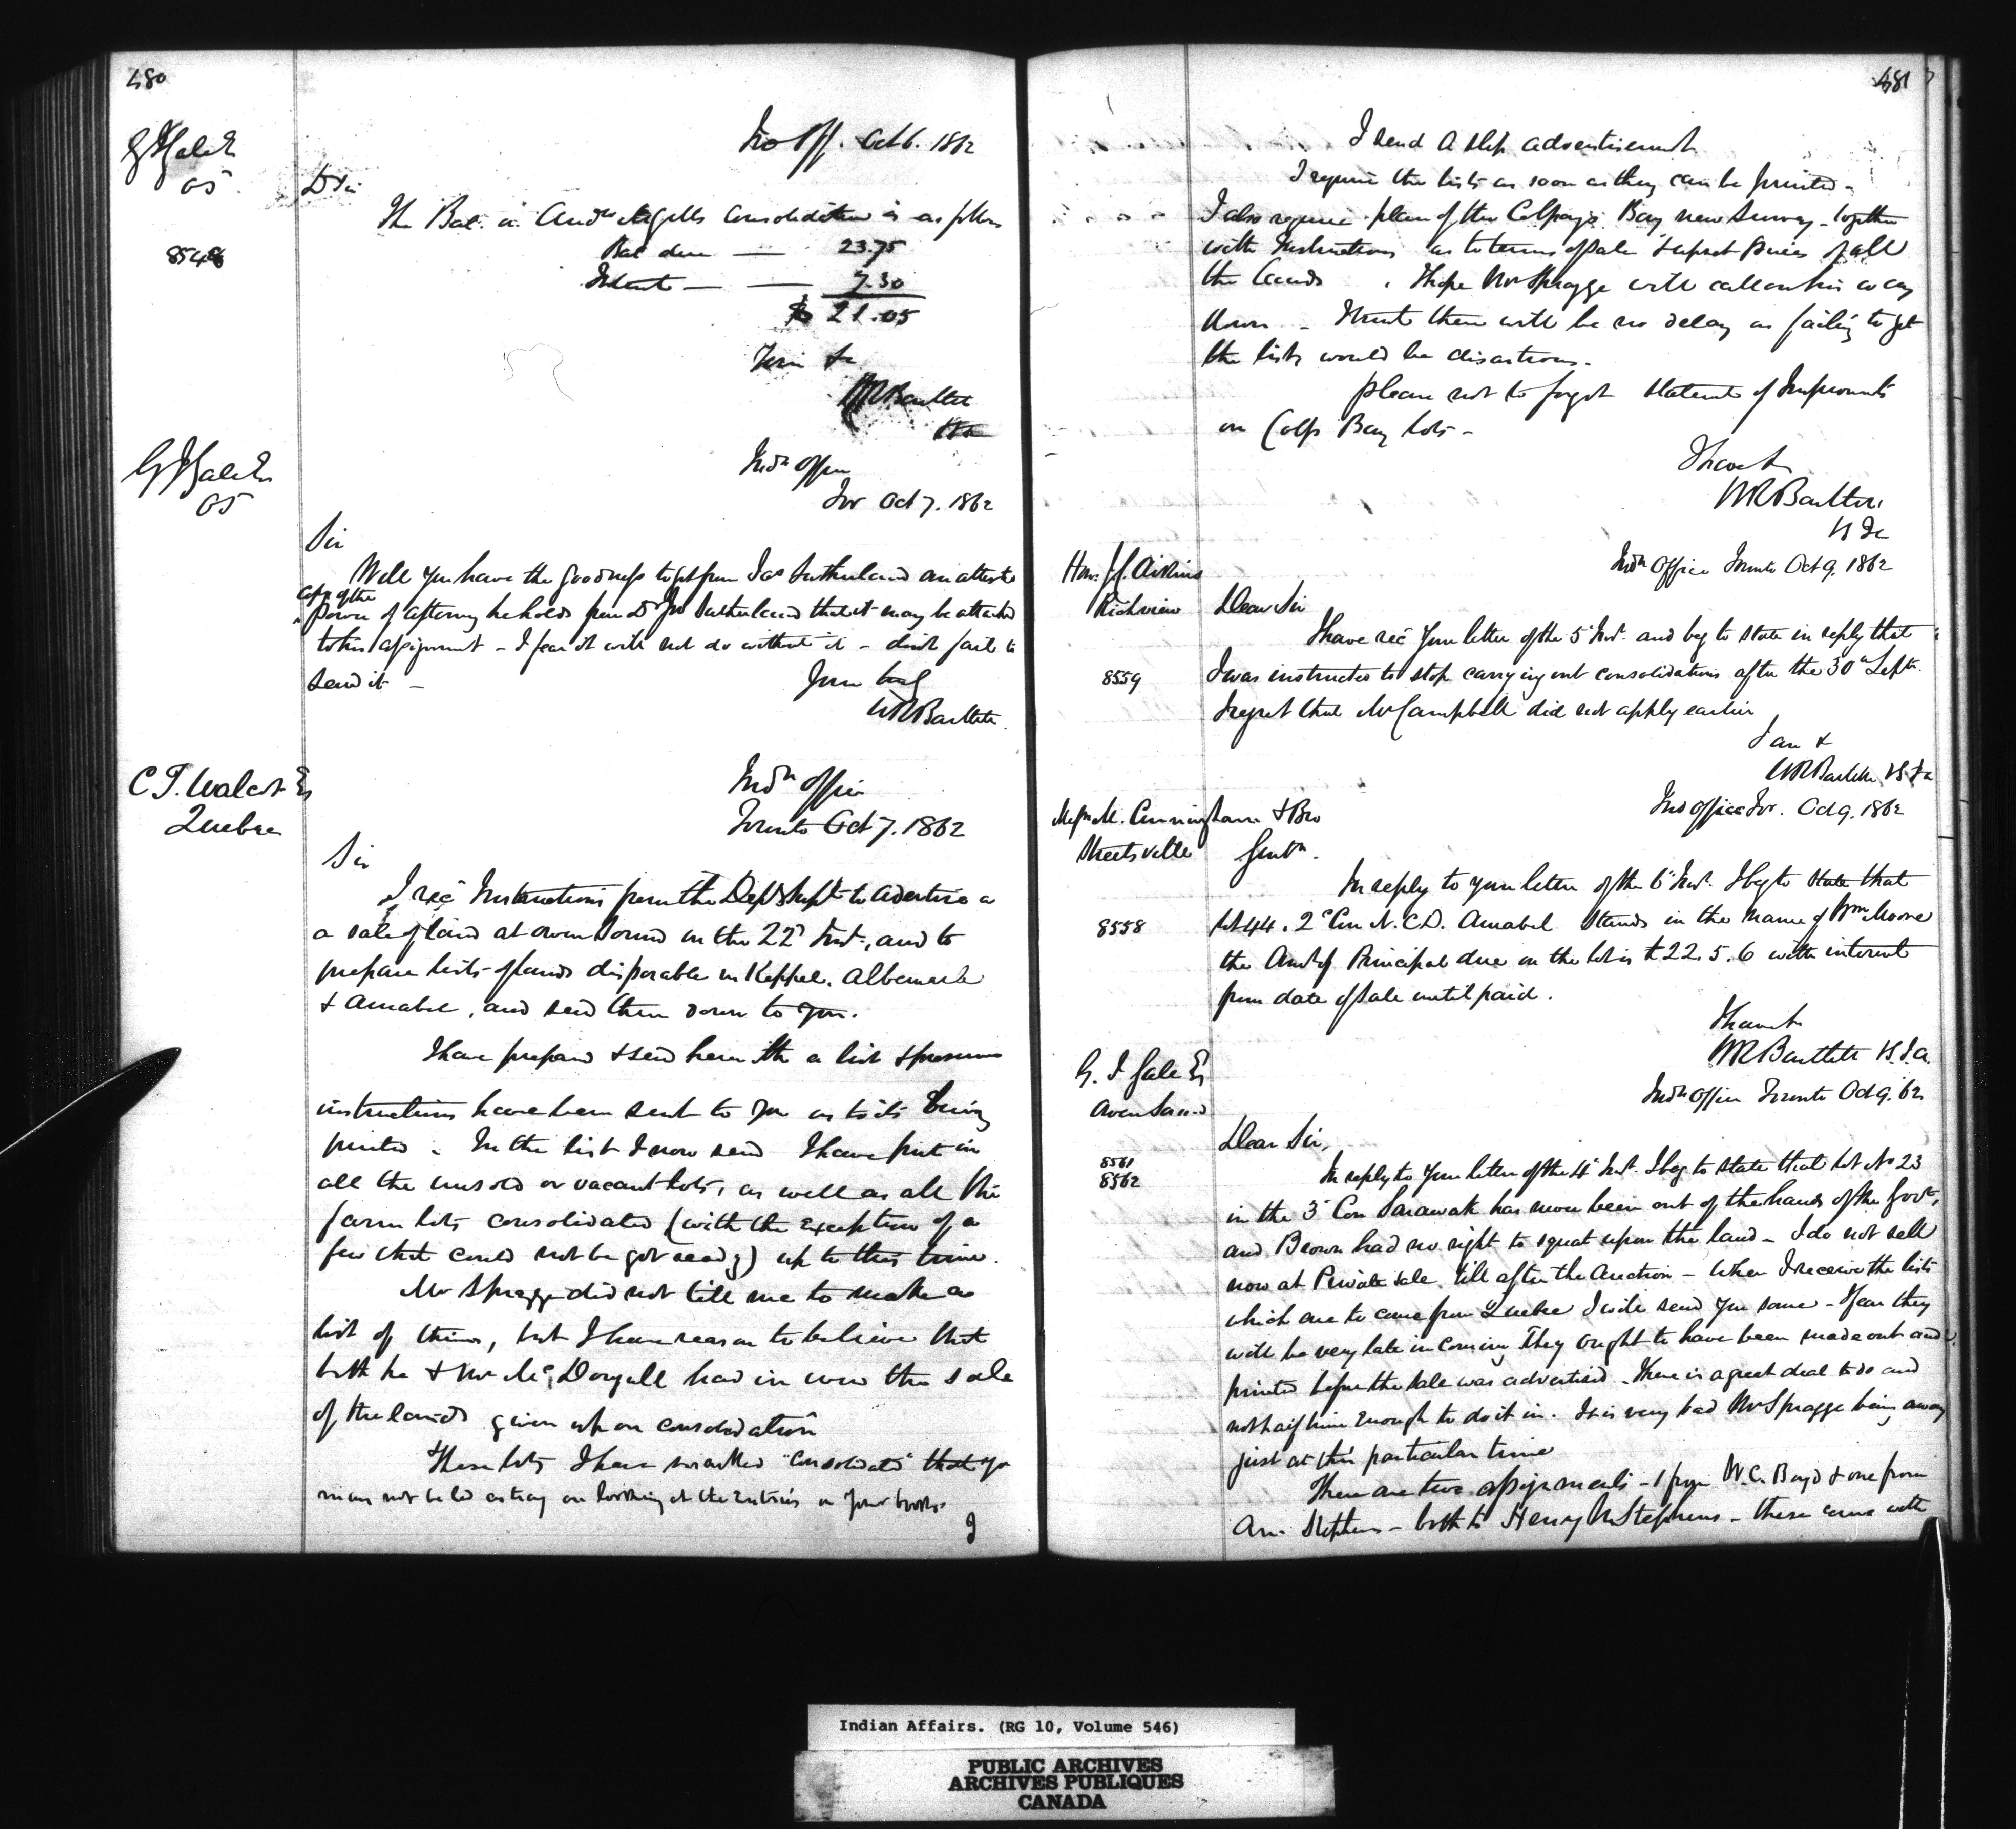 480
G J Gale Er
OS
8548
Ino Off. Oct 6. 1862
D Sir
The Bal. in Andw McGills Consolidation is as follows
Bal due — 23.75
Interest — 7.30
$ 21.05
Yours &c
WRBartlett
G J Gale Er
OS
Indn Office
Tor Oct 7. 1862
Sir
Will you have the goodness to get from Jas Sutherland an attested
copy of the
Power of attorney he holds from Dr Jno Sutherland that it may be attached
to his assignment - I fear it will not do without it - dont fail to
send it -
Yours truly
WRBartlett
C. T. Walcot Er
Quebec
Indn Office
Toronto Oct 7. 1862
Sir
I recd Instructions from the Depy Supt to advertise a
a sale of land at Owen Sound on the 22d Inst., and to
prepare lists of lands disposable in Keppel, Albemarle
& Amabel, and send them down to you.
I have prepared & send herewith a list & presume
instructions have been sent to you as to its being
printed. In the list I now send I have put in
all the unsold or vacant lots, as well as all the
farm lots consolidated (with the exception of a
few that could not be got ready) up to this time.
Mr Spragge did not tell me to make a
list of them, but I have reason to believe that
both he & Mr McDougall had in view the sale
of the lands given up on consolidation
These lots I have marked "Consolidated" that you
may not be led astray on looking at the entries in your books.
I
481
I send a slip advertisement
I require the lists as soon as they can be printed -
I also require plan of the Colpoys Bay new Survey - together
with Instructions as to terms of sale & upset prices of all
the lands. I hope Mr Spragge will call on his way
down - I trust there will be no delay as failing to get
the lists would be disastrous.
Please not to forget statement of Improvements
on Colps Bay lots -
I have &c
WRBartlett
VSIA
Indn Office Toronto Oct 9. 1862
Hon. J C. Aikins
Richview
8559
Dear Sir
I have recd your letter of the 5th Inst. and beg to state in reply that
I was instructed to stop carrying out consolidations after the 30th Sept.
I regret that Mr Campbell did not apply earlier
I am &
WRBartlett VSIA
Ind Office Tor. Oct 9. 1862
Messrs M. Cunningham & Bro
Streetsville
8558
Gentn.
In reply to your letter of the 6th Inst. I beg to state that
lot 44. 2d Con N.C.D. Amabel stands in the name of Wm Moore
the Amt of Principal due on the lot is £22.5.6 with interest
from date of sale until paid.
I have &c
WRBartlett V.S.I.A.
Indn Office Toronto Oct 9. 62
G. J Gale Er
Owen Sound
8561
8562
Dear Sir,
In reply to your letter of the 4th Inst. I beg to state that lot No 23
in the 3d Con Sarawak has never been out of the hands of the Govt,
and Brown had no right to squat upon the land - I do not sell
now at Private sale till after the Auction - When I receive the lists
which are to come from Quebec I will send you some - I fear they
will be very late in coming They ought to have been made out and
printed before the sale was advertised - There is a great deal to do and
not half time enough to do it in. It is very bad Mr Spragge being away
just at this particular time
There are two assignments - 1 from W. C. Boyd & one from
Stephens - both to Henry M Stephens - these came with
Indian Affairs. (RG 10, Volume 546)
PUBLIC ARCHIVES
ARCHIVES PUBLIQUES
CANADA